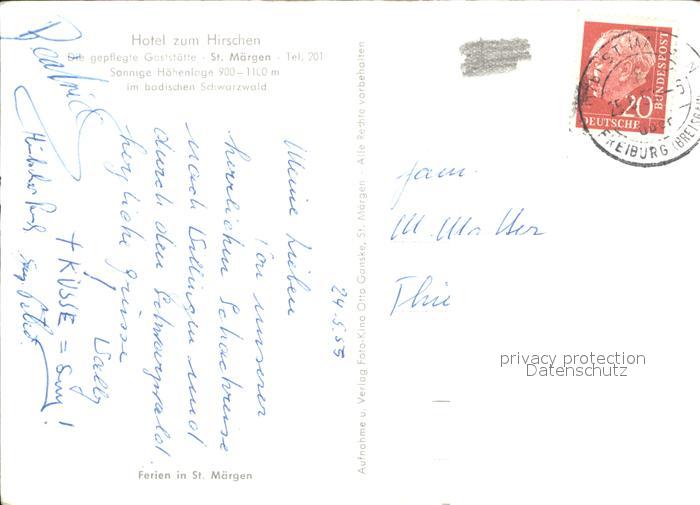 Hotel zum Hirschen
Die gepflegte Gaststätte - St. Märgen - Tel. 201
Sonnige Höhenlage 900-1100 m
im badischen Schwarzwald
24.5.55
Meine Lieben
von unserer
herrlichen Schachreise
nach Villingen und
durch den Schwarzwald
herzliche Grüsse
Wally
+ KÜSSE =
Ferien in St. Märgen
Aufnahme u. Verlag Foto-Kino Otto Ganske, St. Märgen - Alle Rechte vorbehalten
20
DEUTSCHE
BUNDESPOST
ST. MÄ
über
FREIBURG (BREISGAU
Fam.
privacy protection
Datenschutz